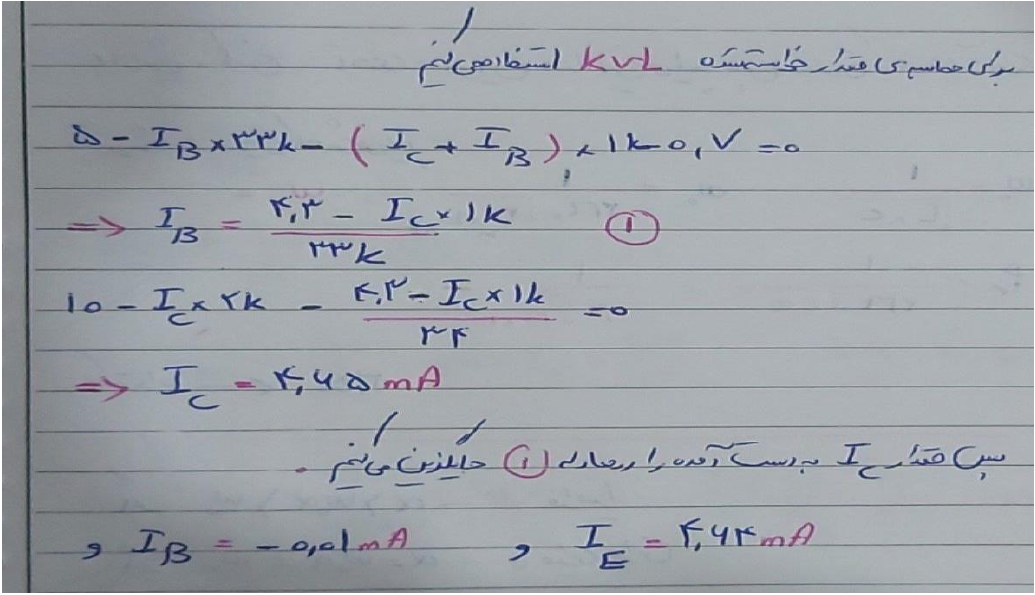 برای محاسبه‌ی مقدار خواسته‌شده KVL استفاده می‌کنیم
۵ - I_B × ۳۳k - ( I_C + I_B ) × ۱k - ۰,۷ = ۰
=> I_B = (۴,۳ - I_C × ۱k) / ۳۳k ①
۱۰ - I_C × ۲k - (۴,۳ - I_C × ۱k) / ۳۴ = ۰
=> I_C = ۴,۶۵ mA
پس مقدار I_C به دست آمده را در معادله ① جایگزین می‌کنیم .
و I_B = - ۰,۰۱ mA و I_E = ۴,۶۴ mA